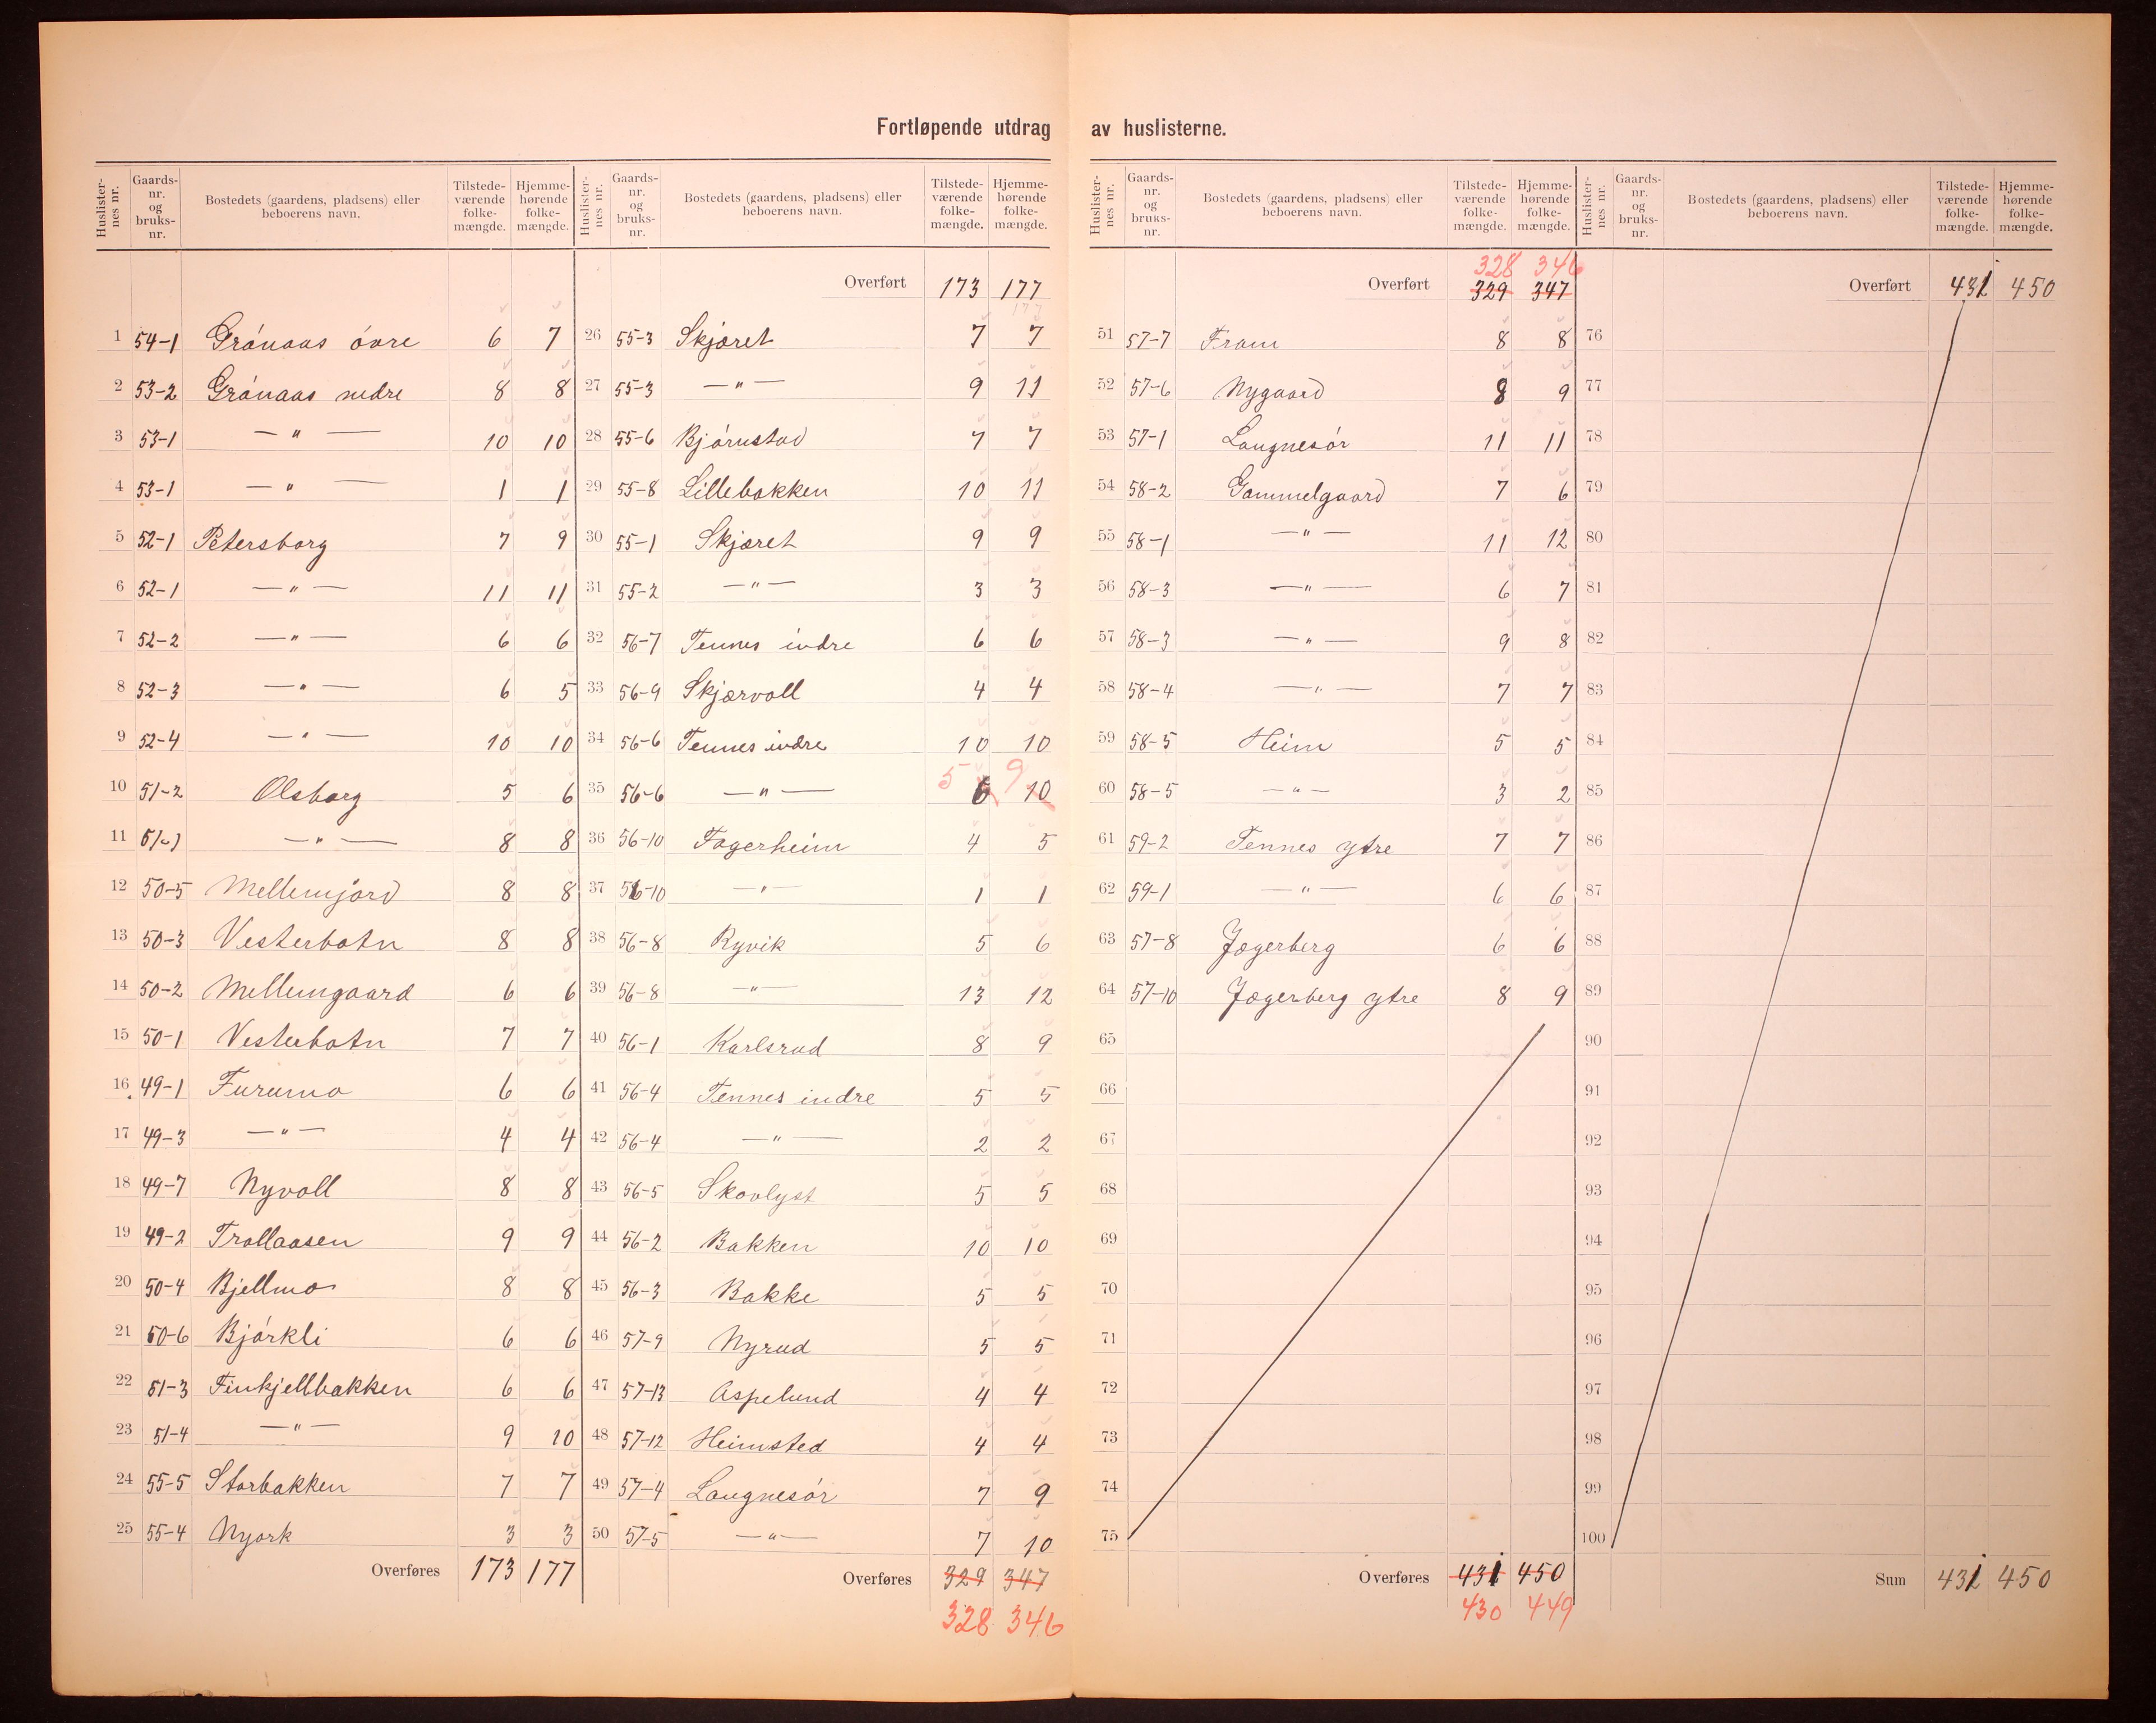 Fortløpende utdrag av huslisterne.
Huslisternes nr. Gaardsnr. og bruksnr. Bostedets (gaardens, pladsens) eller beboerens navn. Tilstedeværende folkemængde. Hjemmehørende folkemængde.
1 54-1 Grónaas óvre 6 7
2 53-2 Grónaas nedre 8 8
3 53-1 — " — 10 10
4 53-1 — " — 1 1
5 52-1 Petersborg 7 9
6 52-1 — " — 11 11
7 52-2 — " — 6 6
8 52-3 — " — 6 5
9 52-4 — " — 10 10
10 51-2 Olsborg 5 6
11 51-1 — " — 8 8
12 50-5 Mellemjord 8 8
13 50-3 Vesterbotn 8 8
14 50-2 Mellemgaard 6 6
15 50-1 Vesterbotn 7 7
16 49-1 Furumo 6 6
17 49-3 — " — 4 4
18 49-7 Nyvoll 8 8
19 49-2 Trollaasen 9 9
20 50-4 Bjellmo 8 8
21 50-6 Bjórkli 6 6
22 51-3 Finkjellbakken 6 6
23 51-4 — " — 9 10
24 55-5 Storbakken 7 7
25 55-4 Nyork 3 3
Overføres 173 177
Huslisternes nr. Gaardsnr. og bruksnr. Bostedets (gaardens, pladsens) eller beboerens navn. Tilstedeværende folkemængde. Hjemmehørende folkemængde.
Overført 173 177
177
26 55-3 Skjæret 7 7
27 55-3 — " — 9 11
28 55-6 Bjórnstad 7 7
29 55-8 Lillebakken 10 11
30 55-1 Skjæret 9 9
31 55-2 — " — 3 3
32 56-7 Tennes indre 6 6
33 56-9 Skjærvoll 4 4
34 56-6 Tennes indre 10 10
5 9
35 56-6 — " — 6 10
36 56-10 Fagerheim 4 5
37 56-10 — " — 1 1
38 56-8 Ryvik 5 6
39 56-8 — " — 13 12
40 56-1 Karlsrud 8 9
41 56-4 Tennes indre 5 5
42 56-4 — " — 2 2
43 56-5 Skovlyst 5 5
44 56-2 Bakken 10 10
45 56-3 Bakke 5 5
46 57-9 Nyrud 5 5
47 57-13 Aspelund 4 4
48 57-12 Heimsted 4 4
49 57-4 Langnesór 7 9
50 57-5 — " — 7 10
Overføres 329 347
328 346
Huslisternes nr. Gaardsnr. og bruksnr. Bostedets (gaardens, pladsens) eller beboerens navn. Tilstedeværende folkemængde. Hjemmehørende folkemængde.
328 346
Overført 329 347
51 57-7 Fram 8 8
52 57-6 Nygaard 8 9
53 57-1 Langnesór 11 11
54 58-2 Gammelgaard 7 6
55 58-1 — " — 11 12
56 58-3 — " — 6 7
57 58-3 — " — 9 8
58 58-4 — " — 7 7
59 58-5 Heim 5 5
60 58-5 — " — 3 2
61 59-2 Tennes ytre 7 7
62 59-1 — " — 6 6
63 57-8 Jægerberg 6 6
64 57-10 Jægerberg ytre 8 9
65
66
67
68
69
70
71
72
73
74
75
Overføres 431 450
430 449
Huslisternes nr. Gaardsnr. og bruksnr. Bostedets (gaardens, pladsens) eller beboerens navn. Tilstedeværende folkemængde. Hjemmehørende folkemængde.
Overført 431 450
76
77
78
79
80
81
82
83
84
85
86
87
88
89
90
91
92
93
94
95
96
97
98
99
100
Sum 431 450